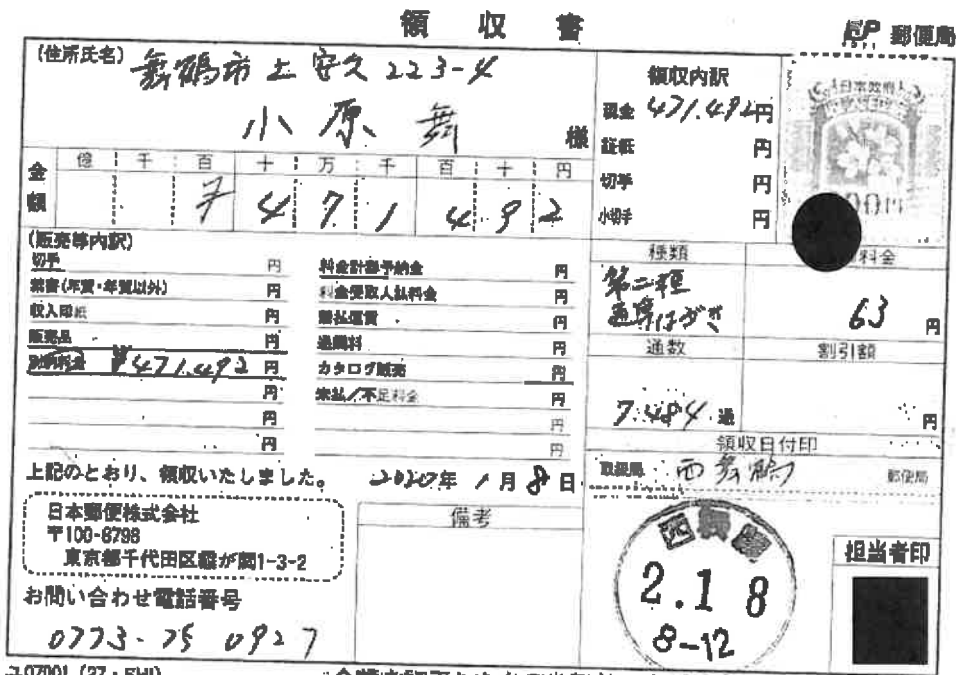 領収書
郵便局
(住所氏名)
舞鶴市上安久223-4
小原 舞 様
領収内訳
現金 471.492円
証紙 円
切手 円
小切手 円
日本政府
金額
億 千 百 十 万 千 百 十 円
4 7 1 4 9 2
(販売等内訳)
切手 円
葉書(年賀・年賀以外) 円
収入印紙 円
販売品 円
別納料金 ¥471.492 円
円
円
円
料金計器予納金 円
料金受取人払料金 円
着払運賃 円
通関料 円
カタログ販売 円
未払/不足料金 円
円
円
種類
料金
第二種
通常はがき
63 円
通数
割引額
7.484 通
円
領収日付印
取扱局 西舞鶴 郵便局
上記のとおり、領収いたしました。
2020年 1月 8日
日本郵便株式会社
〒100-8798
東京都千代田区霞が関1-3-2
お問い合わせ電話番号
0773-75 0927
備考
西舞鶴
2.1 8
8-12
担当者印